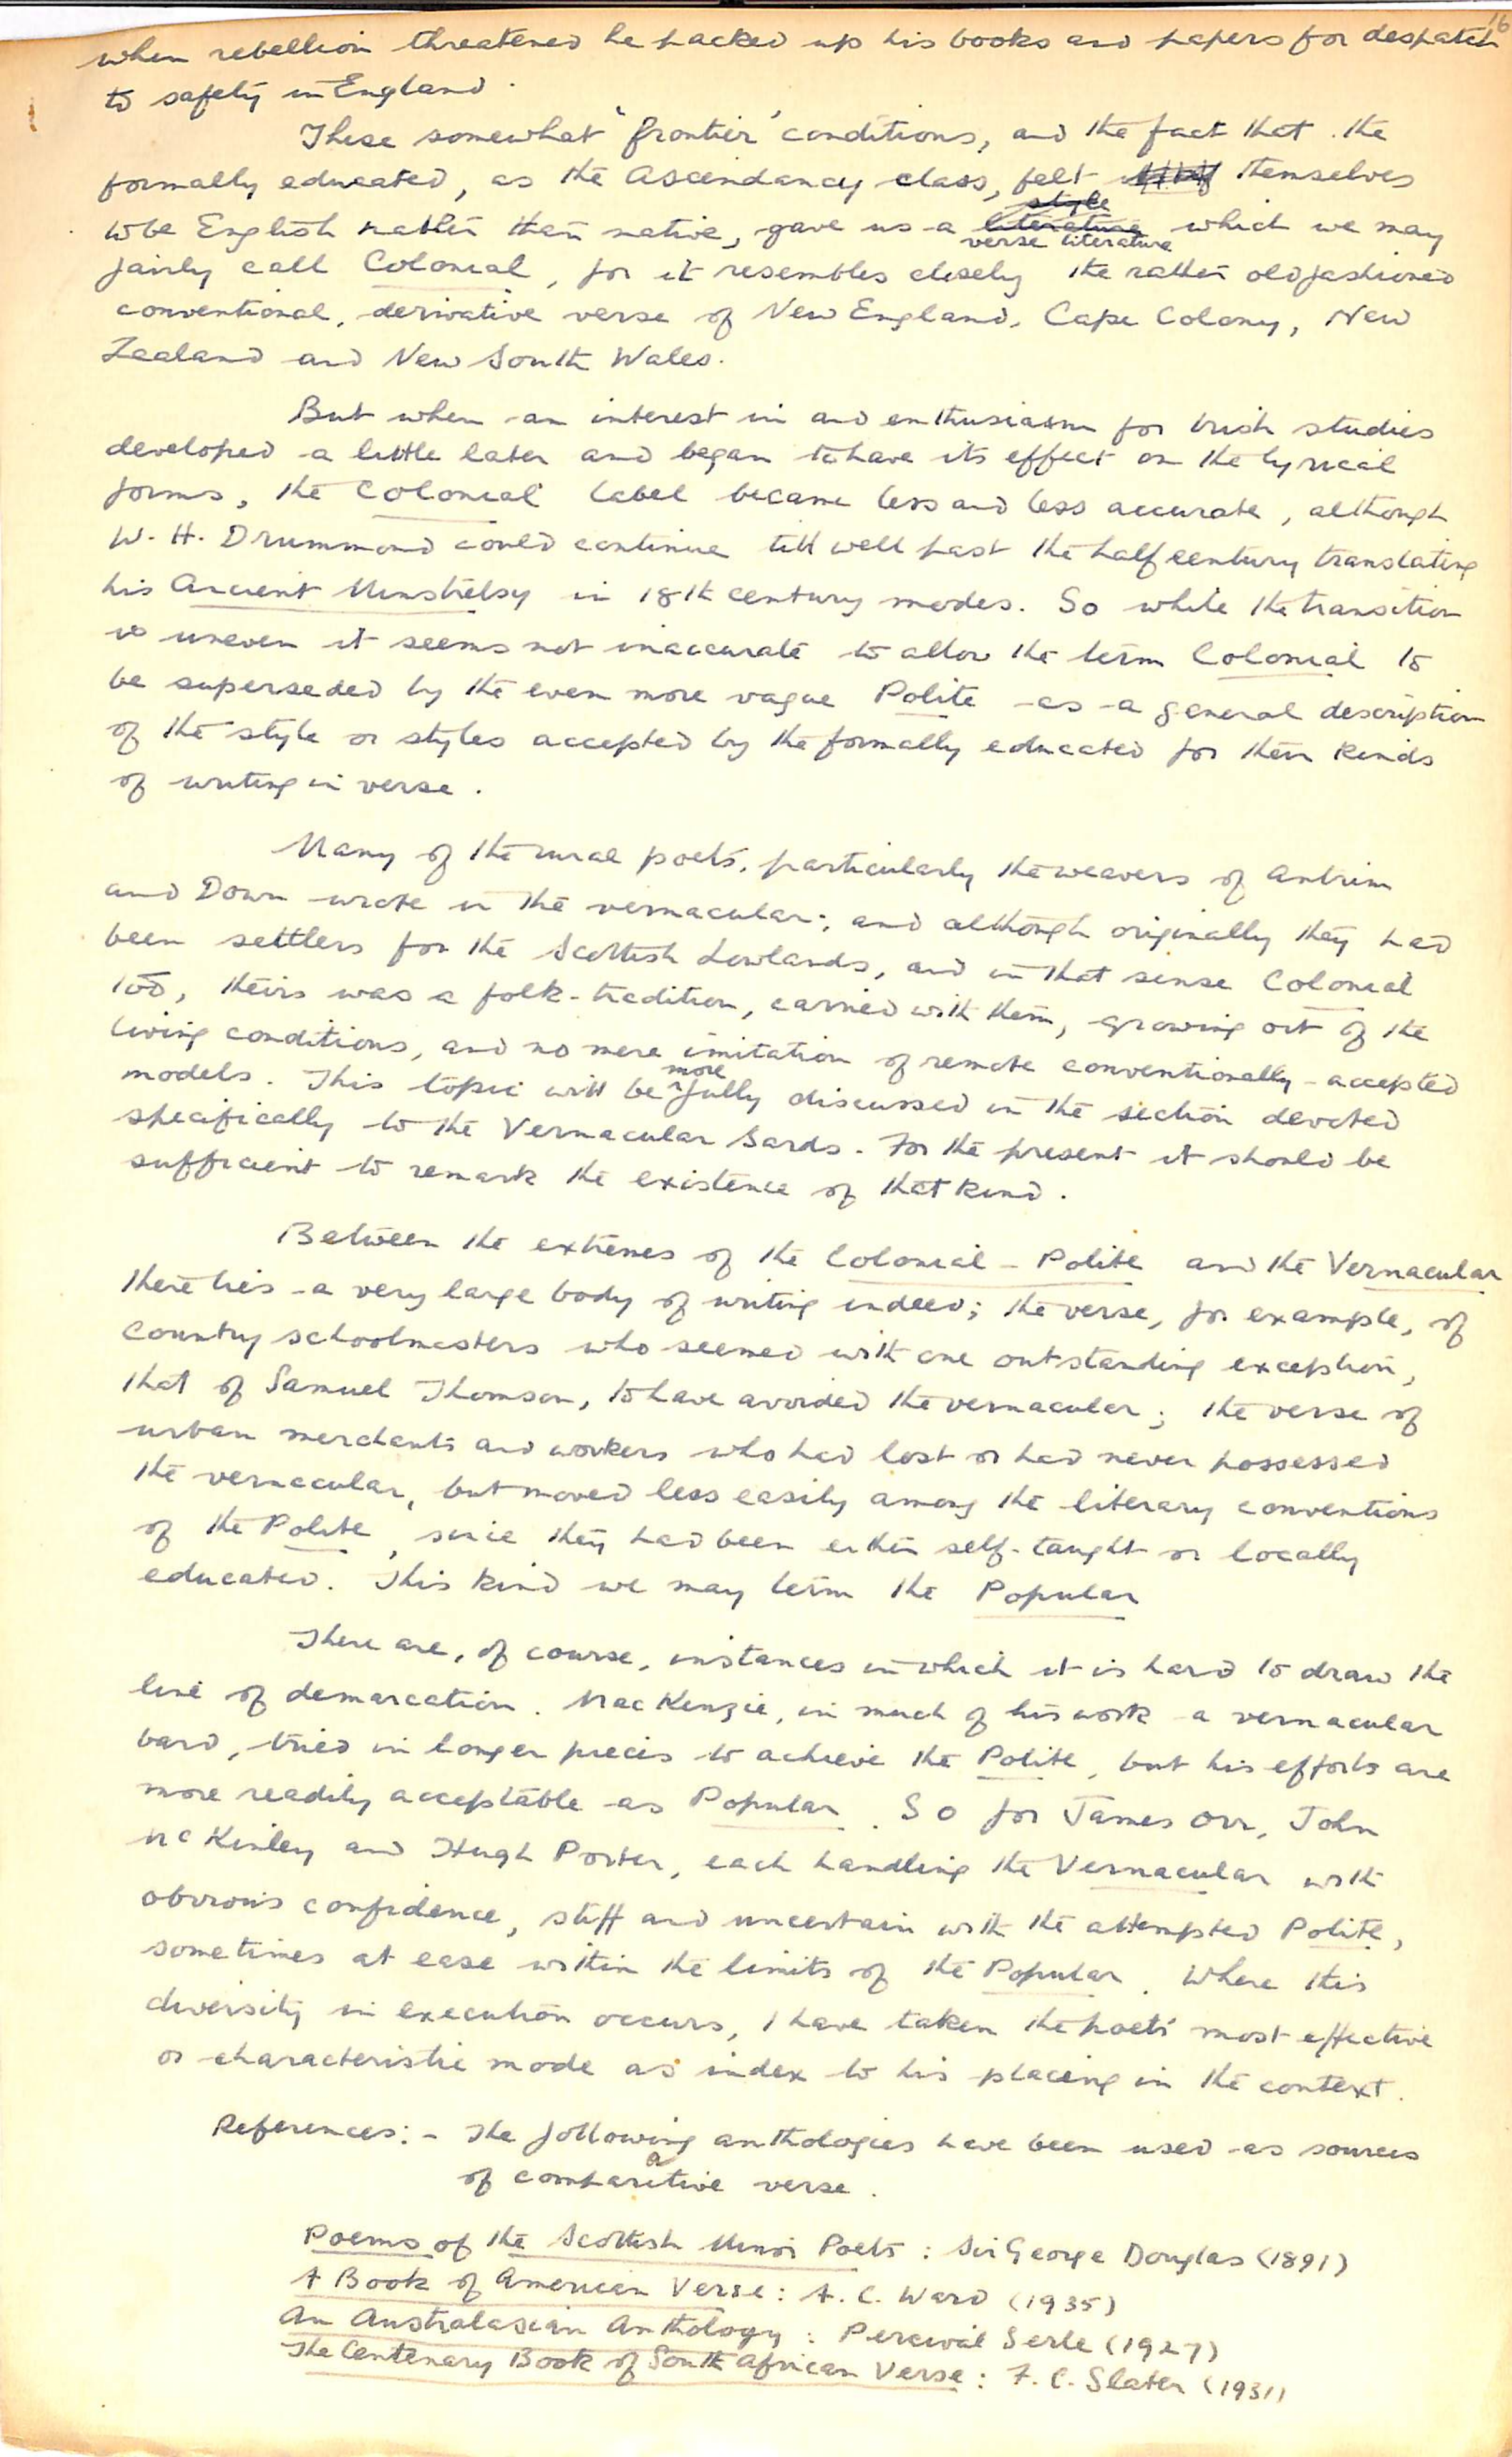 16
when rebellion threatened he packed up his books and papers for despatch
to safety in England.
These somewhat 'frontier' conditions, and the fact that the
formally educated, as the Ascendancy class, felt themselves
to be English rather than native, gave us a literature style which we may
verse literature
fairly call Colonial, for it resembles closely the rather oldfashioned
conventional, derivative verse of New England, Cape Colony, New
Zealand and New South Wales.
But when an interest in and enthusiasm for Irish studies
developed a little later and began to have its effect on the lyrical
forms, the Colonial label became less and less accurate, although
W. H. Drummond could continue till well past the half century translating
his Ancient Minstrelsy in 18th century modes. So while the transition
is uneven it seems not inaccurate to allow the term Colonial to
be superseded by the even more vague Polite as a general description
of the style or styles accepted by the formally educated for their kinds
of writing in verse.
Many of the rural poets, particularly the weavers of Antrim
and Down wrote in the vernacular; and although originally they had
been settlers for the Scottish Lowlands, and in that sense Colonial
too, theirs was a folk-tradition, carried with them, growing out of the
living conditions, and no mere imitation of remote conventionally-accepted
models. This topic will be more fully discussed in the section devoted
specifically to the Vernacular Bards. For the present it should be
sufficient to remark the existence of that kind.
Between the extremes of the Colonial-Polite and the Vernacular
there lies a very large body of writing indeed; the verse, for example, of
country schoolmasters who seemed with one outstanding exception,
that of Samuel Thomson, to have avoided the vernacular; the verse of
urban merchants and workers who had lost or had never possessed
the vernacular, but moved less easily among the literary conventions
of the Polite, since they had been either self-taught or locally
educated. This kind we may term the Popular
There are, of course, instances in which it is hard to draw the
line of demarcation. MacKenzie, in much of his work a vernacular
bard, tried in longer pieces to achieve the Polite, but his efforts are
more readily acceptable as Popular. So for James Orr, John
McKinley and Hugh Porter, each handling the Vernacular with
obvious confidence, stiff and uncertain with the attempted Polite,
sometimes at ease within the limits of the Popular. Where this
diversity in execution occurs, I have taken the poet's most effective
or characteristic mode as index to his placing in the context.
References:- The following anthologies have been used as sources
of comparative verse.
Poems of the Scottish Minor Poets: Sir George Douglas (1891)
A Book of American Verse: A. C. Ward (1935)
An Australasian Anthology: Percival Serle (1927)
The Centenary Book of South African Verse: F. C. Slater (1931)